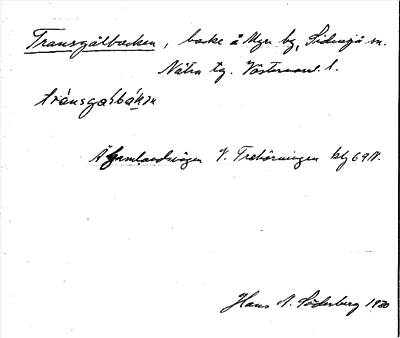 Transgålbacken, backe å Myr. by, Sidensjö sn.
Nätra tg. Västernorrl. l.
tránsgalbákın
Å Gamlandsvägen V. Trehörningen blg 69N.
Hans N. Söderberg 1920